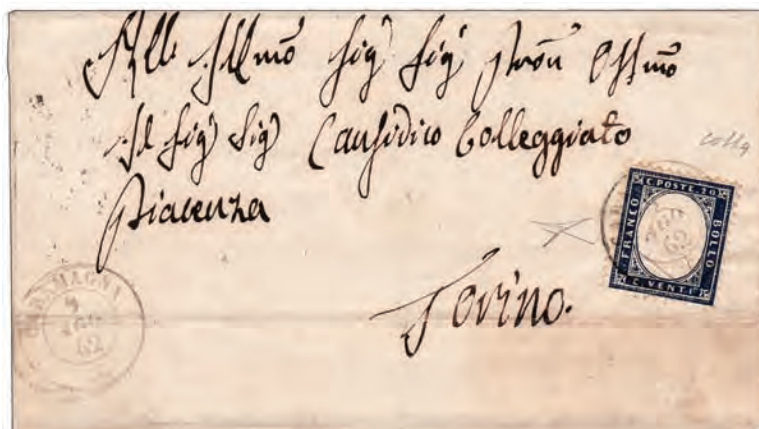 All. Ill.mo Sig. Sig. Pron. Oss.mo
Il Sig. Sig. Causidico Colleggiato
Piacenza
Torino.
C. POSTE 20
FRANCO
BOLLO
C. VENTI
AGO
62
CARAMAGNA
9
AGO
62